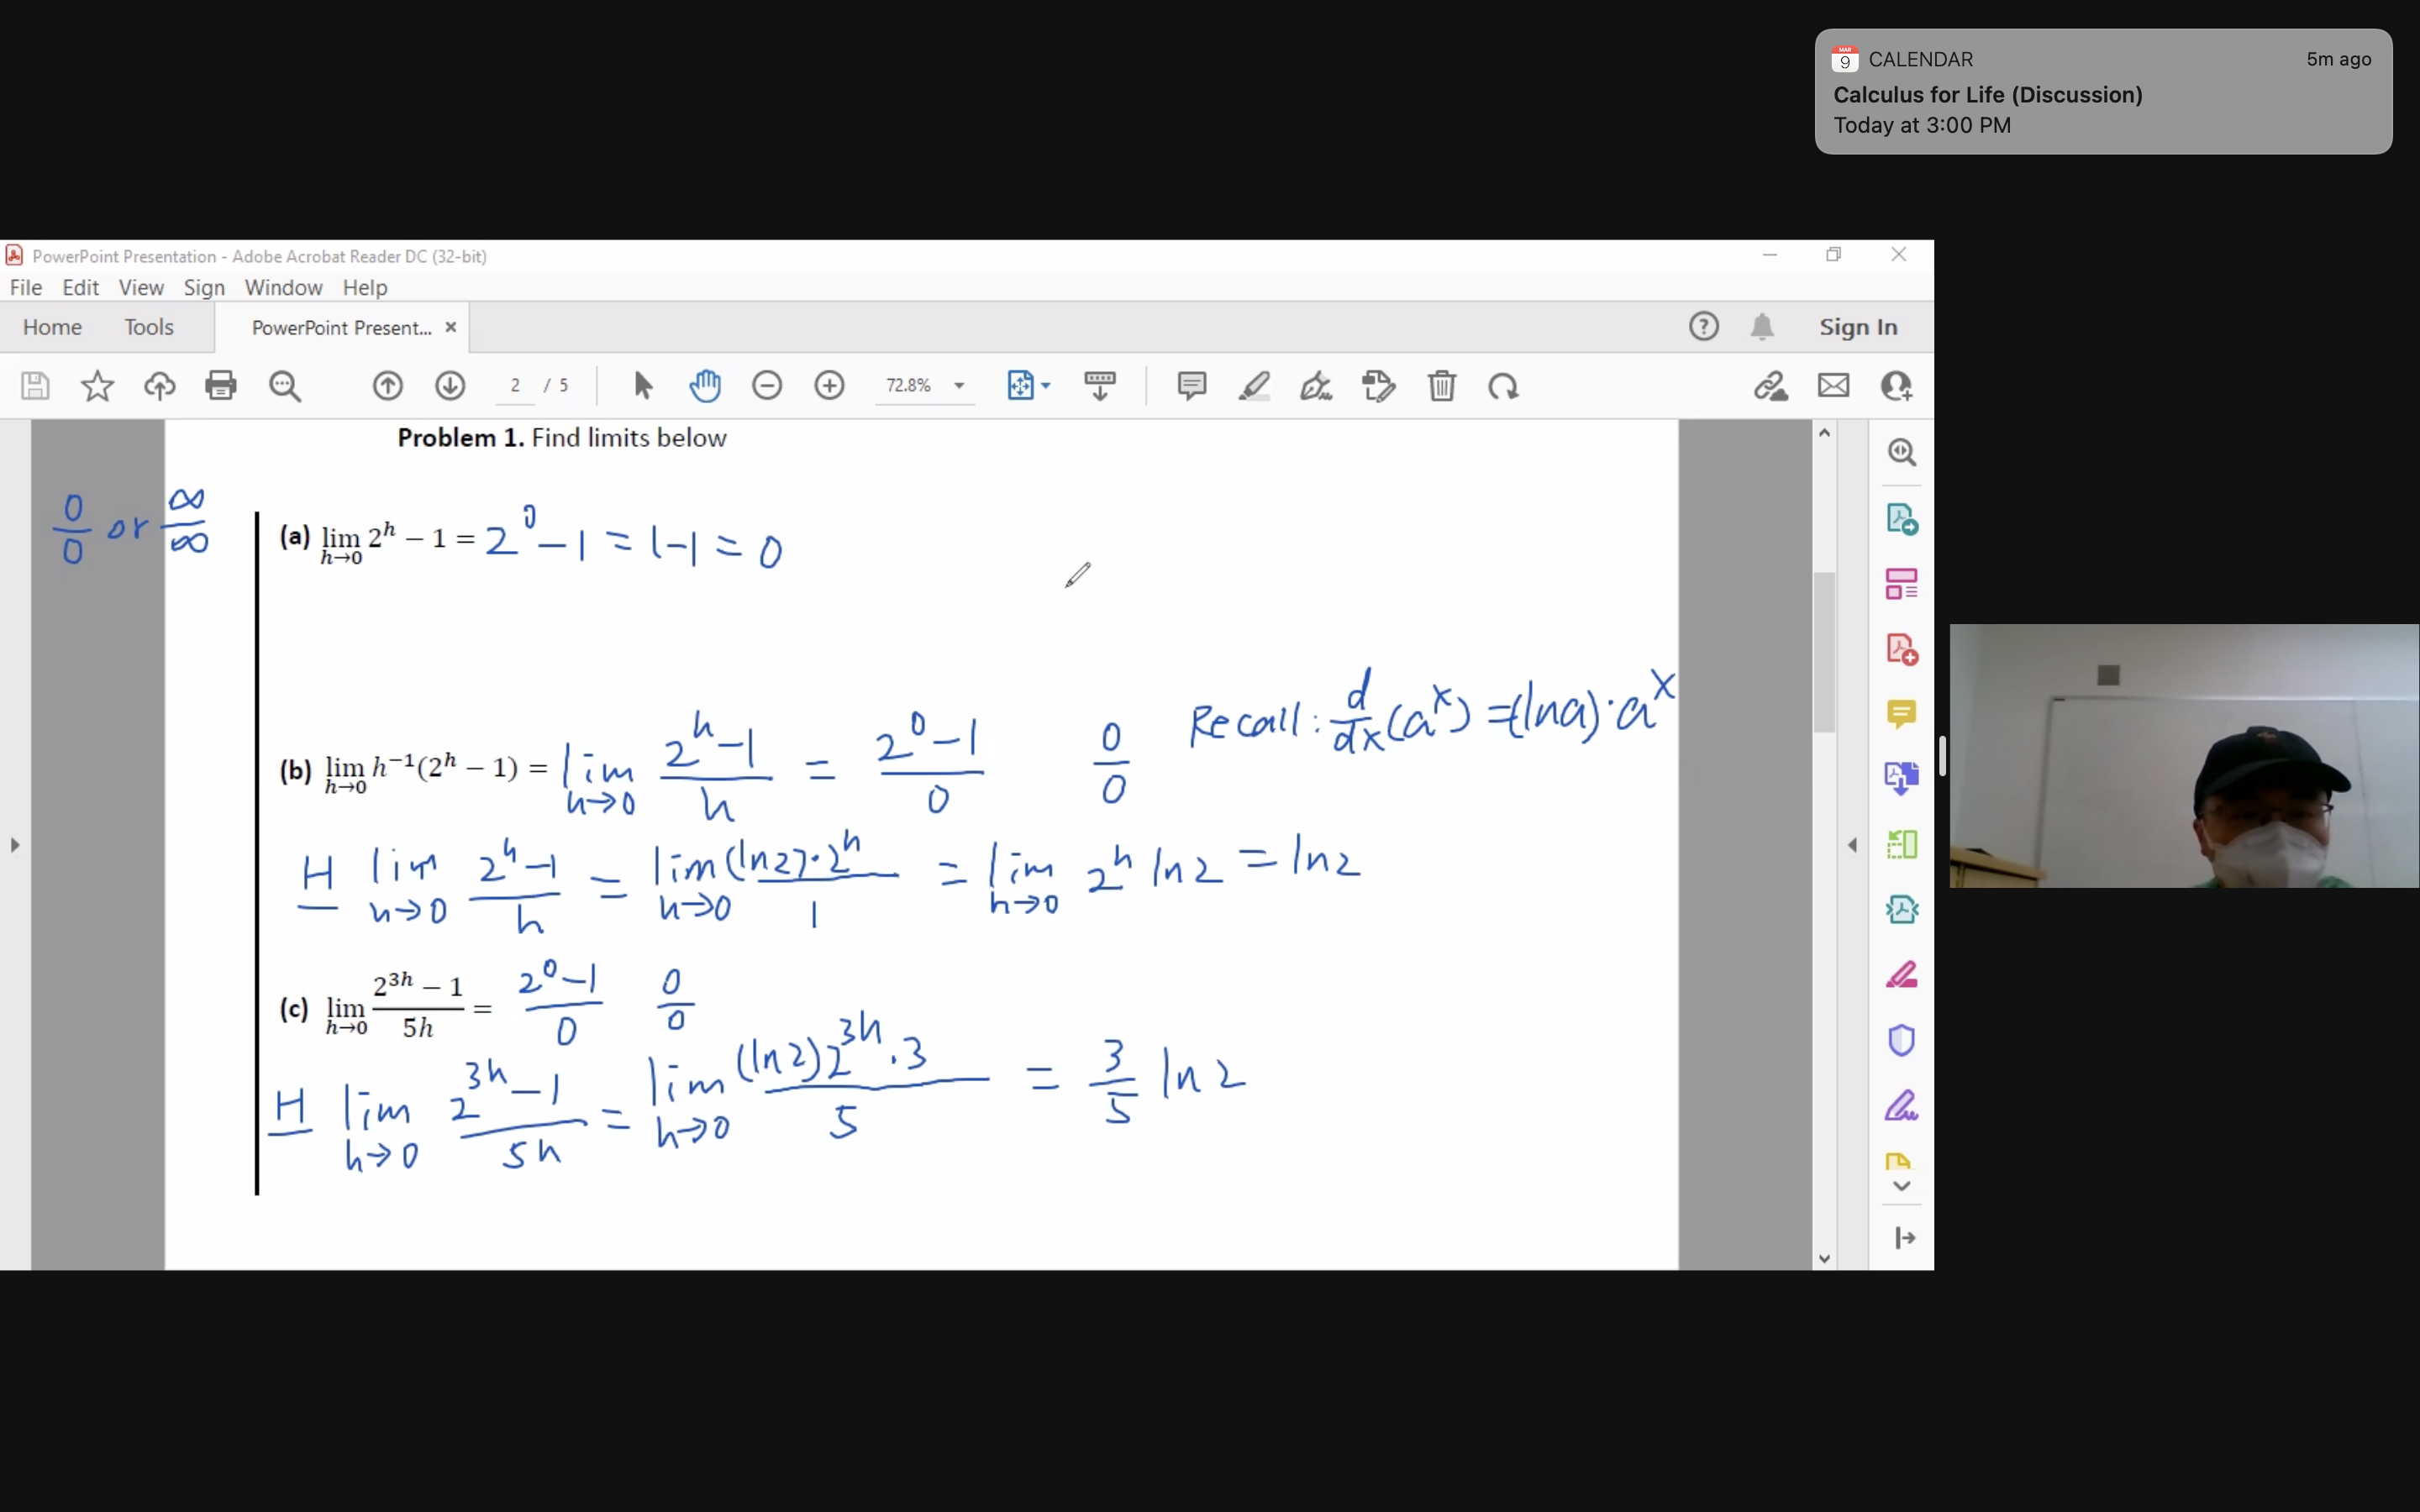 MAR
9 CALENDAR 5m ago
Calculus for Life (Discussion)
Today at 3:00 PM
PowerPoint Presentation - Adobe Acrobat Reader DC (32-bit)
File Edit View Sign Window Help
Home Tools PowerPoint Present... × Sign In
2 / 5 72.8%
Problem 1. Find limits below
0/0 or ∞/∞
(a) lim h→0 2^h − 1 = 2^0 − 1 = 1 − 1 = 0
Recall: d/dx (a^x) = (ln a) · a^x
(b) lim h→0 h^−1(2^h − 1) = lim h→0 (2^h − 1)/h = (2^0 − 1)/0 0/0
H lim h→0 (2^h − 1)/h = lim h→0 (ln 2) · 2^h / 1 = lim h→0 2^h ln 2 = ln 2
(c) lim h→0 (2^3h − 1)/5h = (2^0 − 1)/0 0/0
H lim h→0 (2^3h − 1)/5h = lim h→0 (ln 2) 2^3h · 3 / 5 = 3/5 ln 2